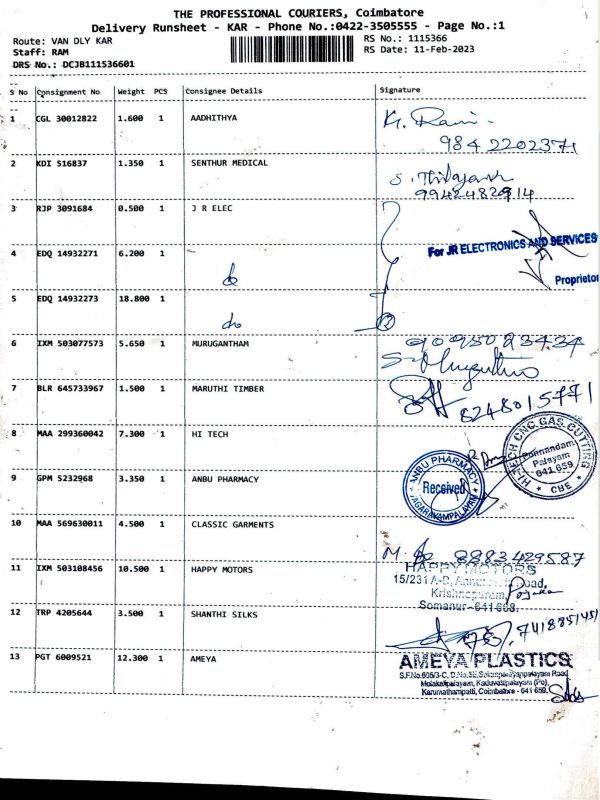 THE PROFESSIONAL COURIERS, Coimbatore
Delivery Runsheet - KAR - Phone No.:0422-3505555 - Page No.:1
Route: VAN DLY KAR
RS No.: 1115366
Staff: RAM
RS Date: 11-Feb-2023
DRS No.: DCJB111536601
S No Consignment No Weight PCS Consignee Details Signature
1 CGL 30012822 1.600 1 AADHITHYA
9842202371
2 KDI 516837 1.350 1 SENTHUR MEDICAL
9942482914
3 RJP 3091684 0.500 1 J R ELEC
For JR ELECTRONICS AND SERVICES
4 EDQ 14932271 6.200 1 do
Proprietor
5 EDQ 14932273 18.800 1 do
6 IXM 503077573 5.650 1 MURUGANTHAM
9095023434
7 BLR 645733967 1.500 1 MARUTHI TIMBER
8248015771
8 MAA 299360042 7.300 1 HI TECH
HI-TECH CNC GAS CUTTING
Ponnandam
Palayam
641 659
CBE
9 GPM 5232968 3.350 1 ANBU PHARMACY
ANBU PHARMACY
Received
10 MAA 569630011 4.500 1 CLASSIC GARMENTS
8883429587
11 IXM 503108456 10.500 1 HAPPY MOTORS
HAPPY MOTORS
15/231 A-B, Road,
Krishnapuram,
Somanur-641 668.
12 TRP 4205644 3.500 1 SHANTHI SILKS
13 PGT 6009521 12.300 1 AMEYA
AMEYA PLASTICS
Karumathampatti, Coimbatore - 641 659.